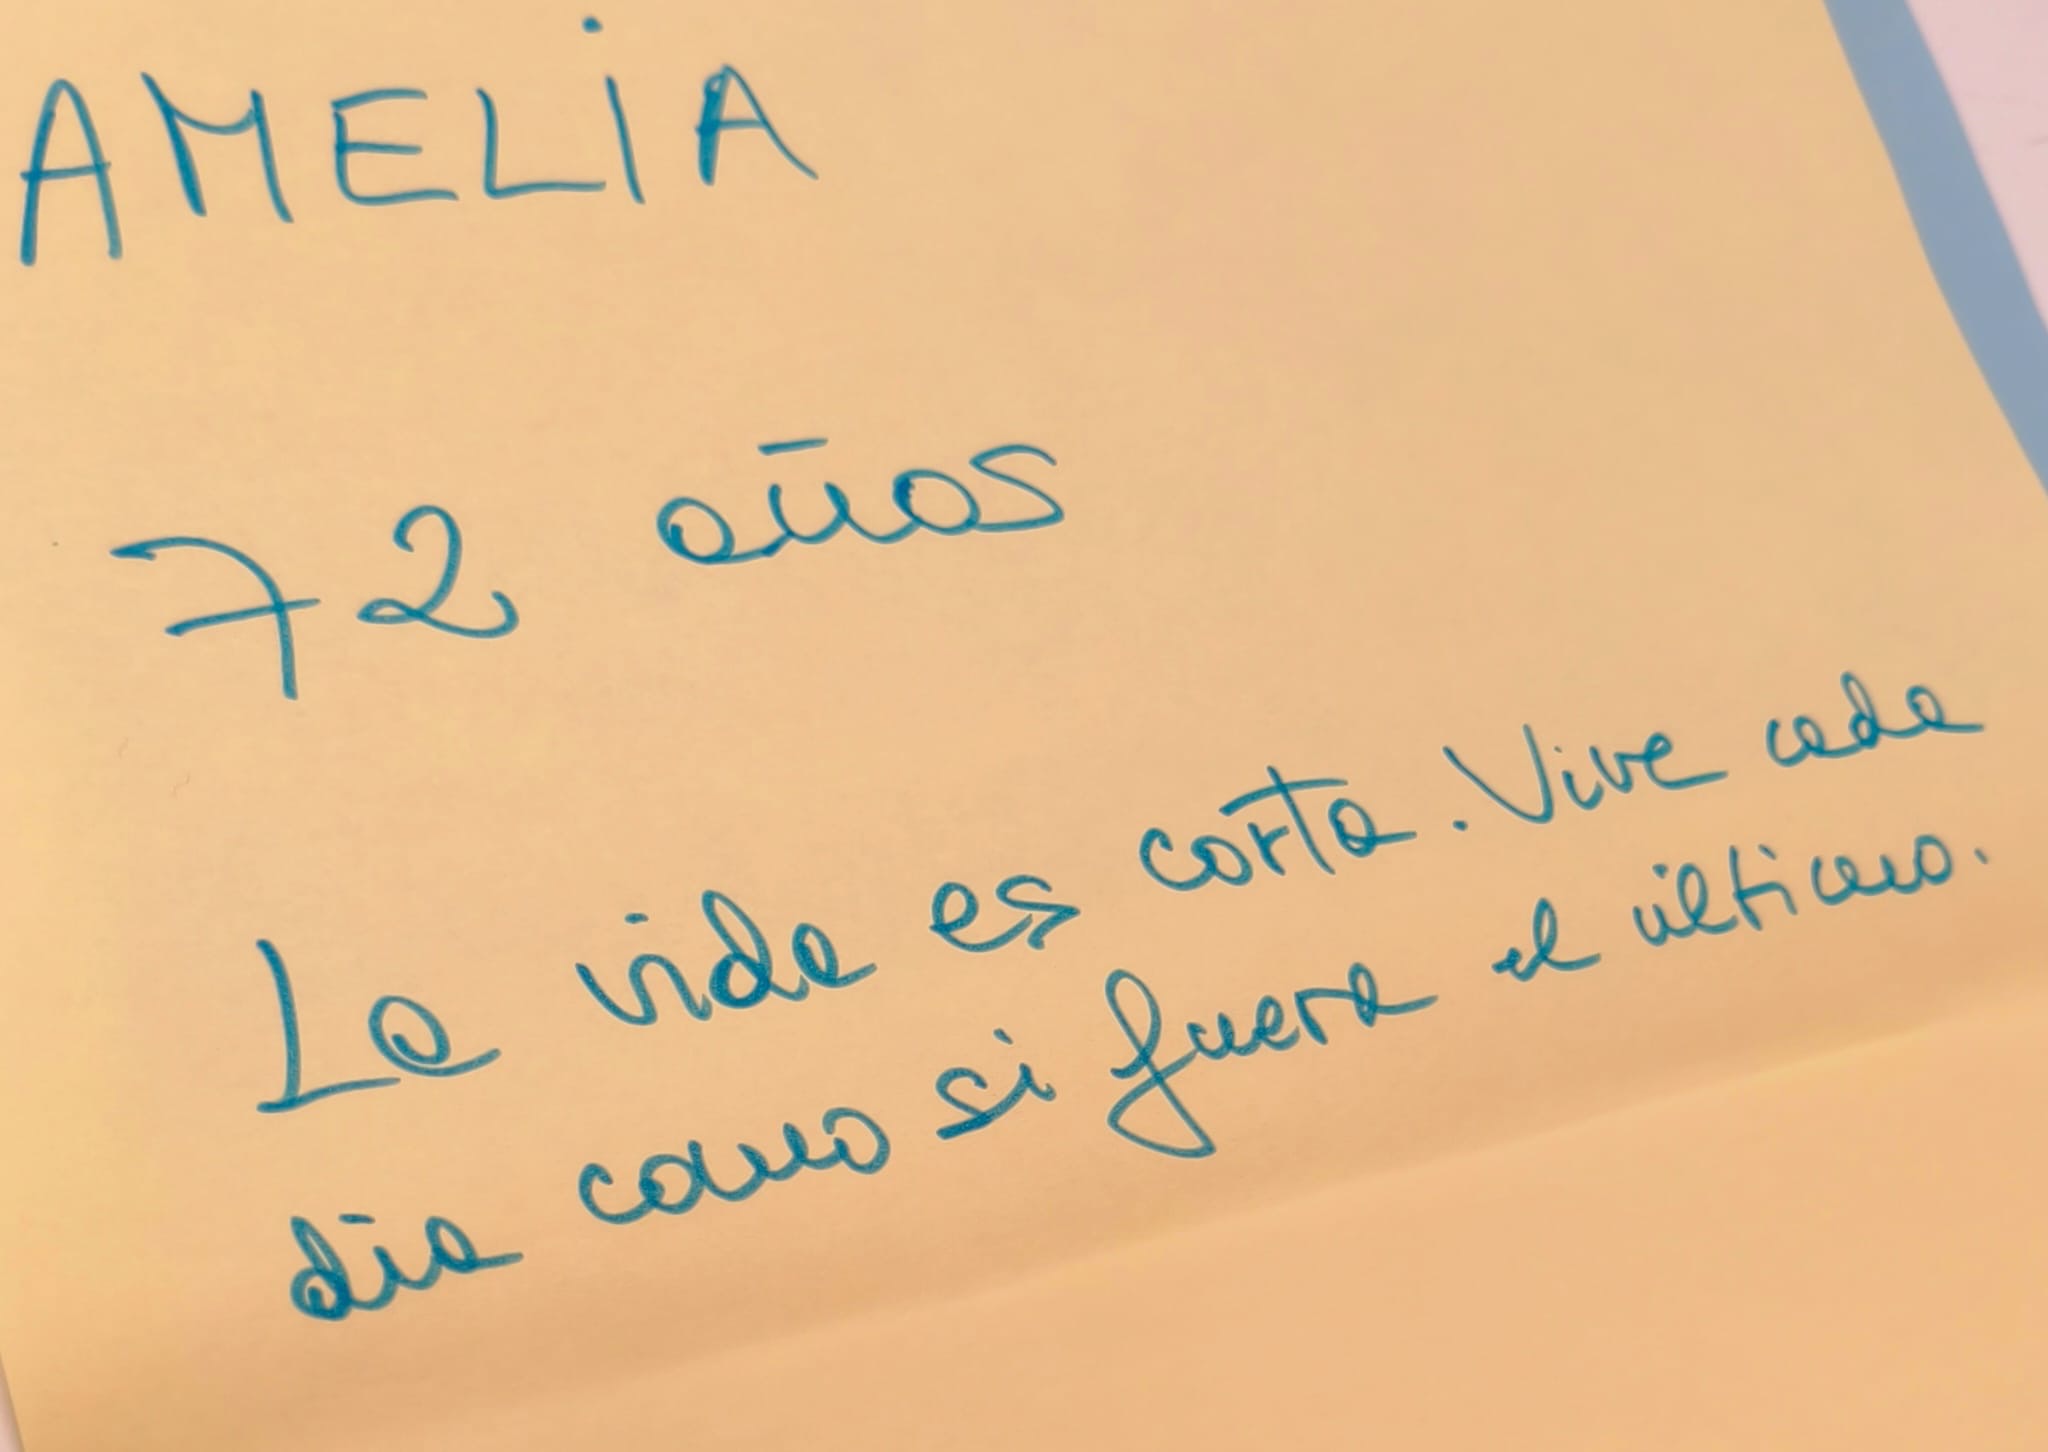 AMELiA
72 años
La vida es corta. Vive cada
día como si fuera el último.